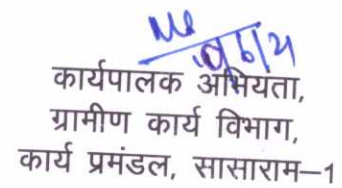 कार्यपालक अभियता,
ग्रामीण कार्य विभाग,
कार्य प्रमंडल, सासाराम–1